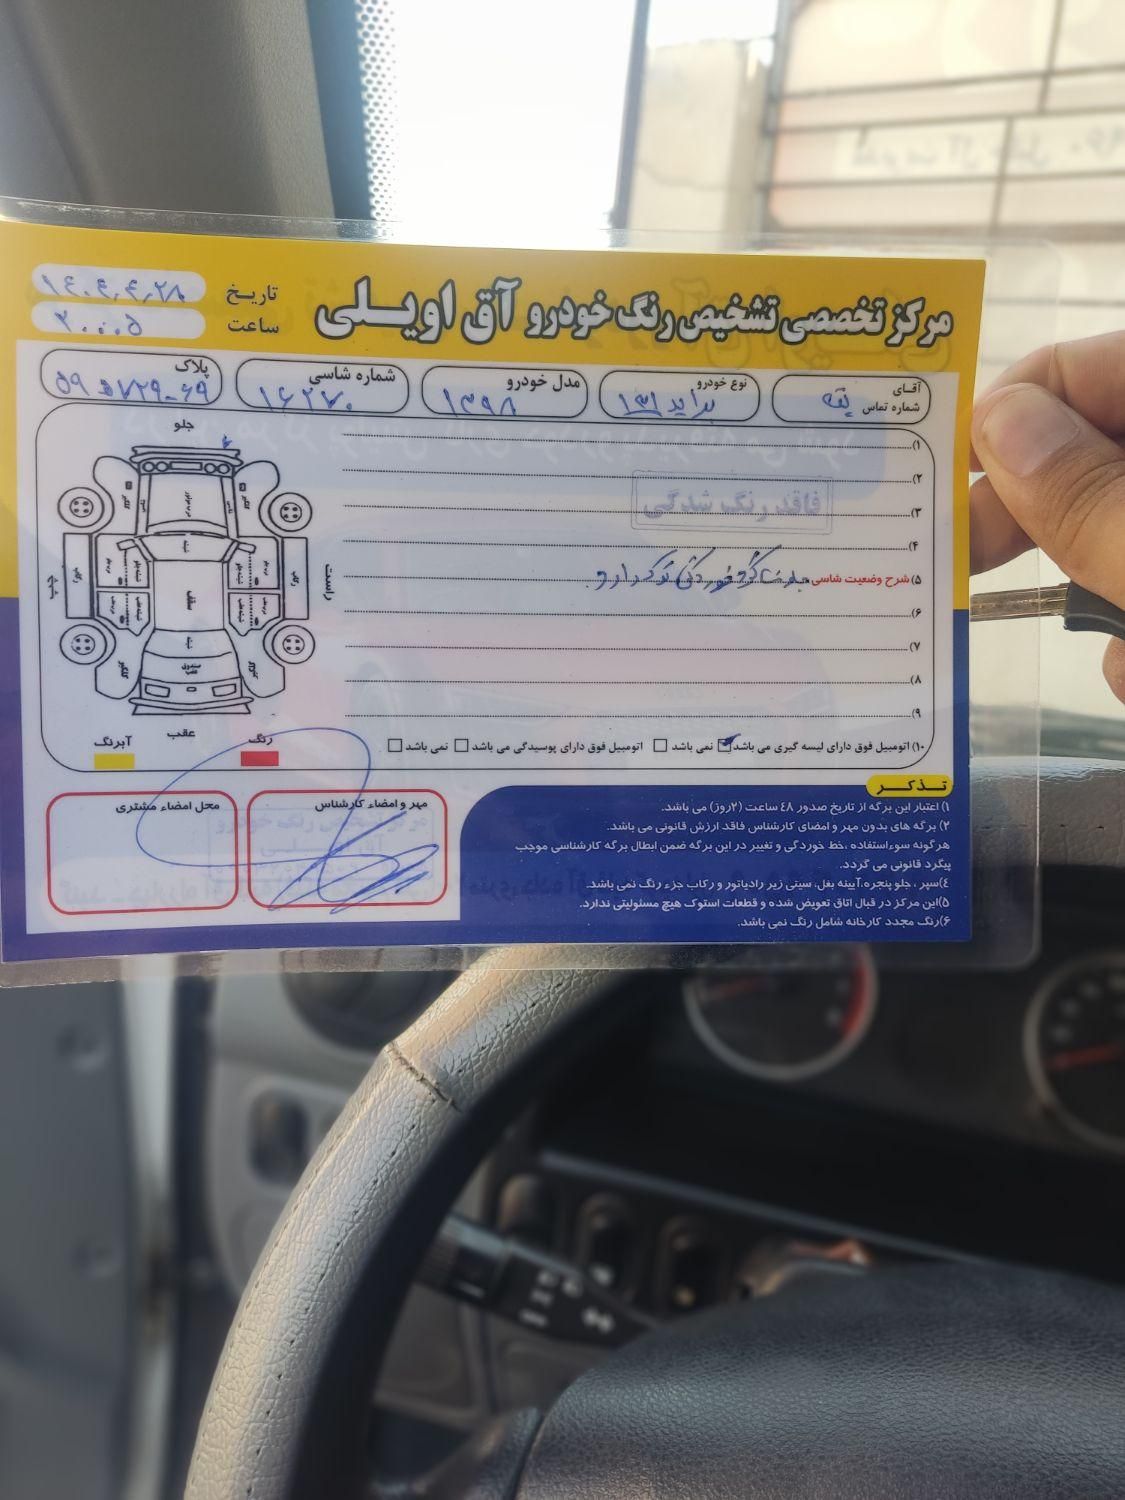 مرکز تخصصی تشخیص رنگ خودرو آق اویلی
تاریخ ۱۴۰۴٫۴٫۲۸
ساعت ۲۰:۰۵
آقای
شماره تماس
نوع خودرو پراید ۱۳۱
مدل خودرو ۱۳۹۸
شماره شاسی ۱۶۲۷۰
پلاک
جلو
راست
عقب
کاپوت
سقف
شیشه
گلگیر
رکاب
صندوق عقب
رنگ
آبرنگ
۱)
۲)
۳)
فاقد رنگ شدگی
۴)
۵) شرح وضعیت شاسی
۶)
۷)
۸)
۹)
۱۰) اتومبیل فوق دارای لیسه گیری می باشد نمی باشد اتومبیل فوق دارای پوسیدگی می باشد نمی باشد
مهر و امضاء کارشناس
محل امضاء مشتری
تذکر
۱) اعتبار این برگه از تاریخ صدور ٤٨ ساعت (۲روز) می باشد.
۲) برگه های بدون مهر و امضای کارشناس فاقد ارزش قانونی می باشد.
هرگونه سوءاستفاده ،خط خوردگی و تغییر در این برگه ضمن ابطال برگه کارشناسی موجب
پیگرد قانونی می گردد.
٤) سپر ، جلو پنجره،آیینه بغل، سینی زیر رادیاتور و رکاب جزء رنگ نمی باشد.
۵)این مرکز در قبال اتاق تعویض شده و قطعات استوک هیچ مسئولیتی ندارد.
۶)رنگ مجدد کارخانه شامل رنگ نمی باشد.